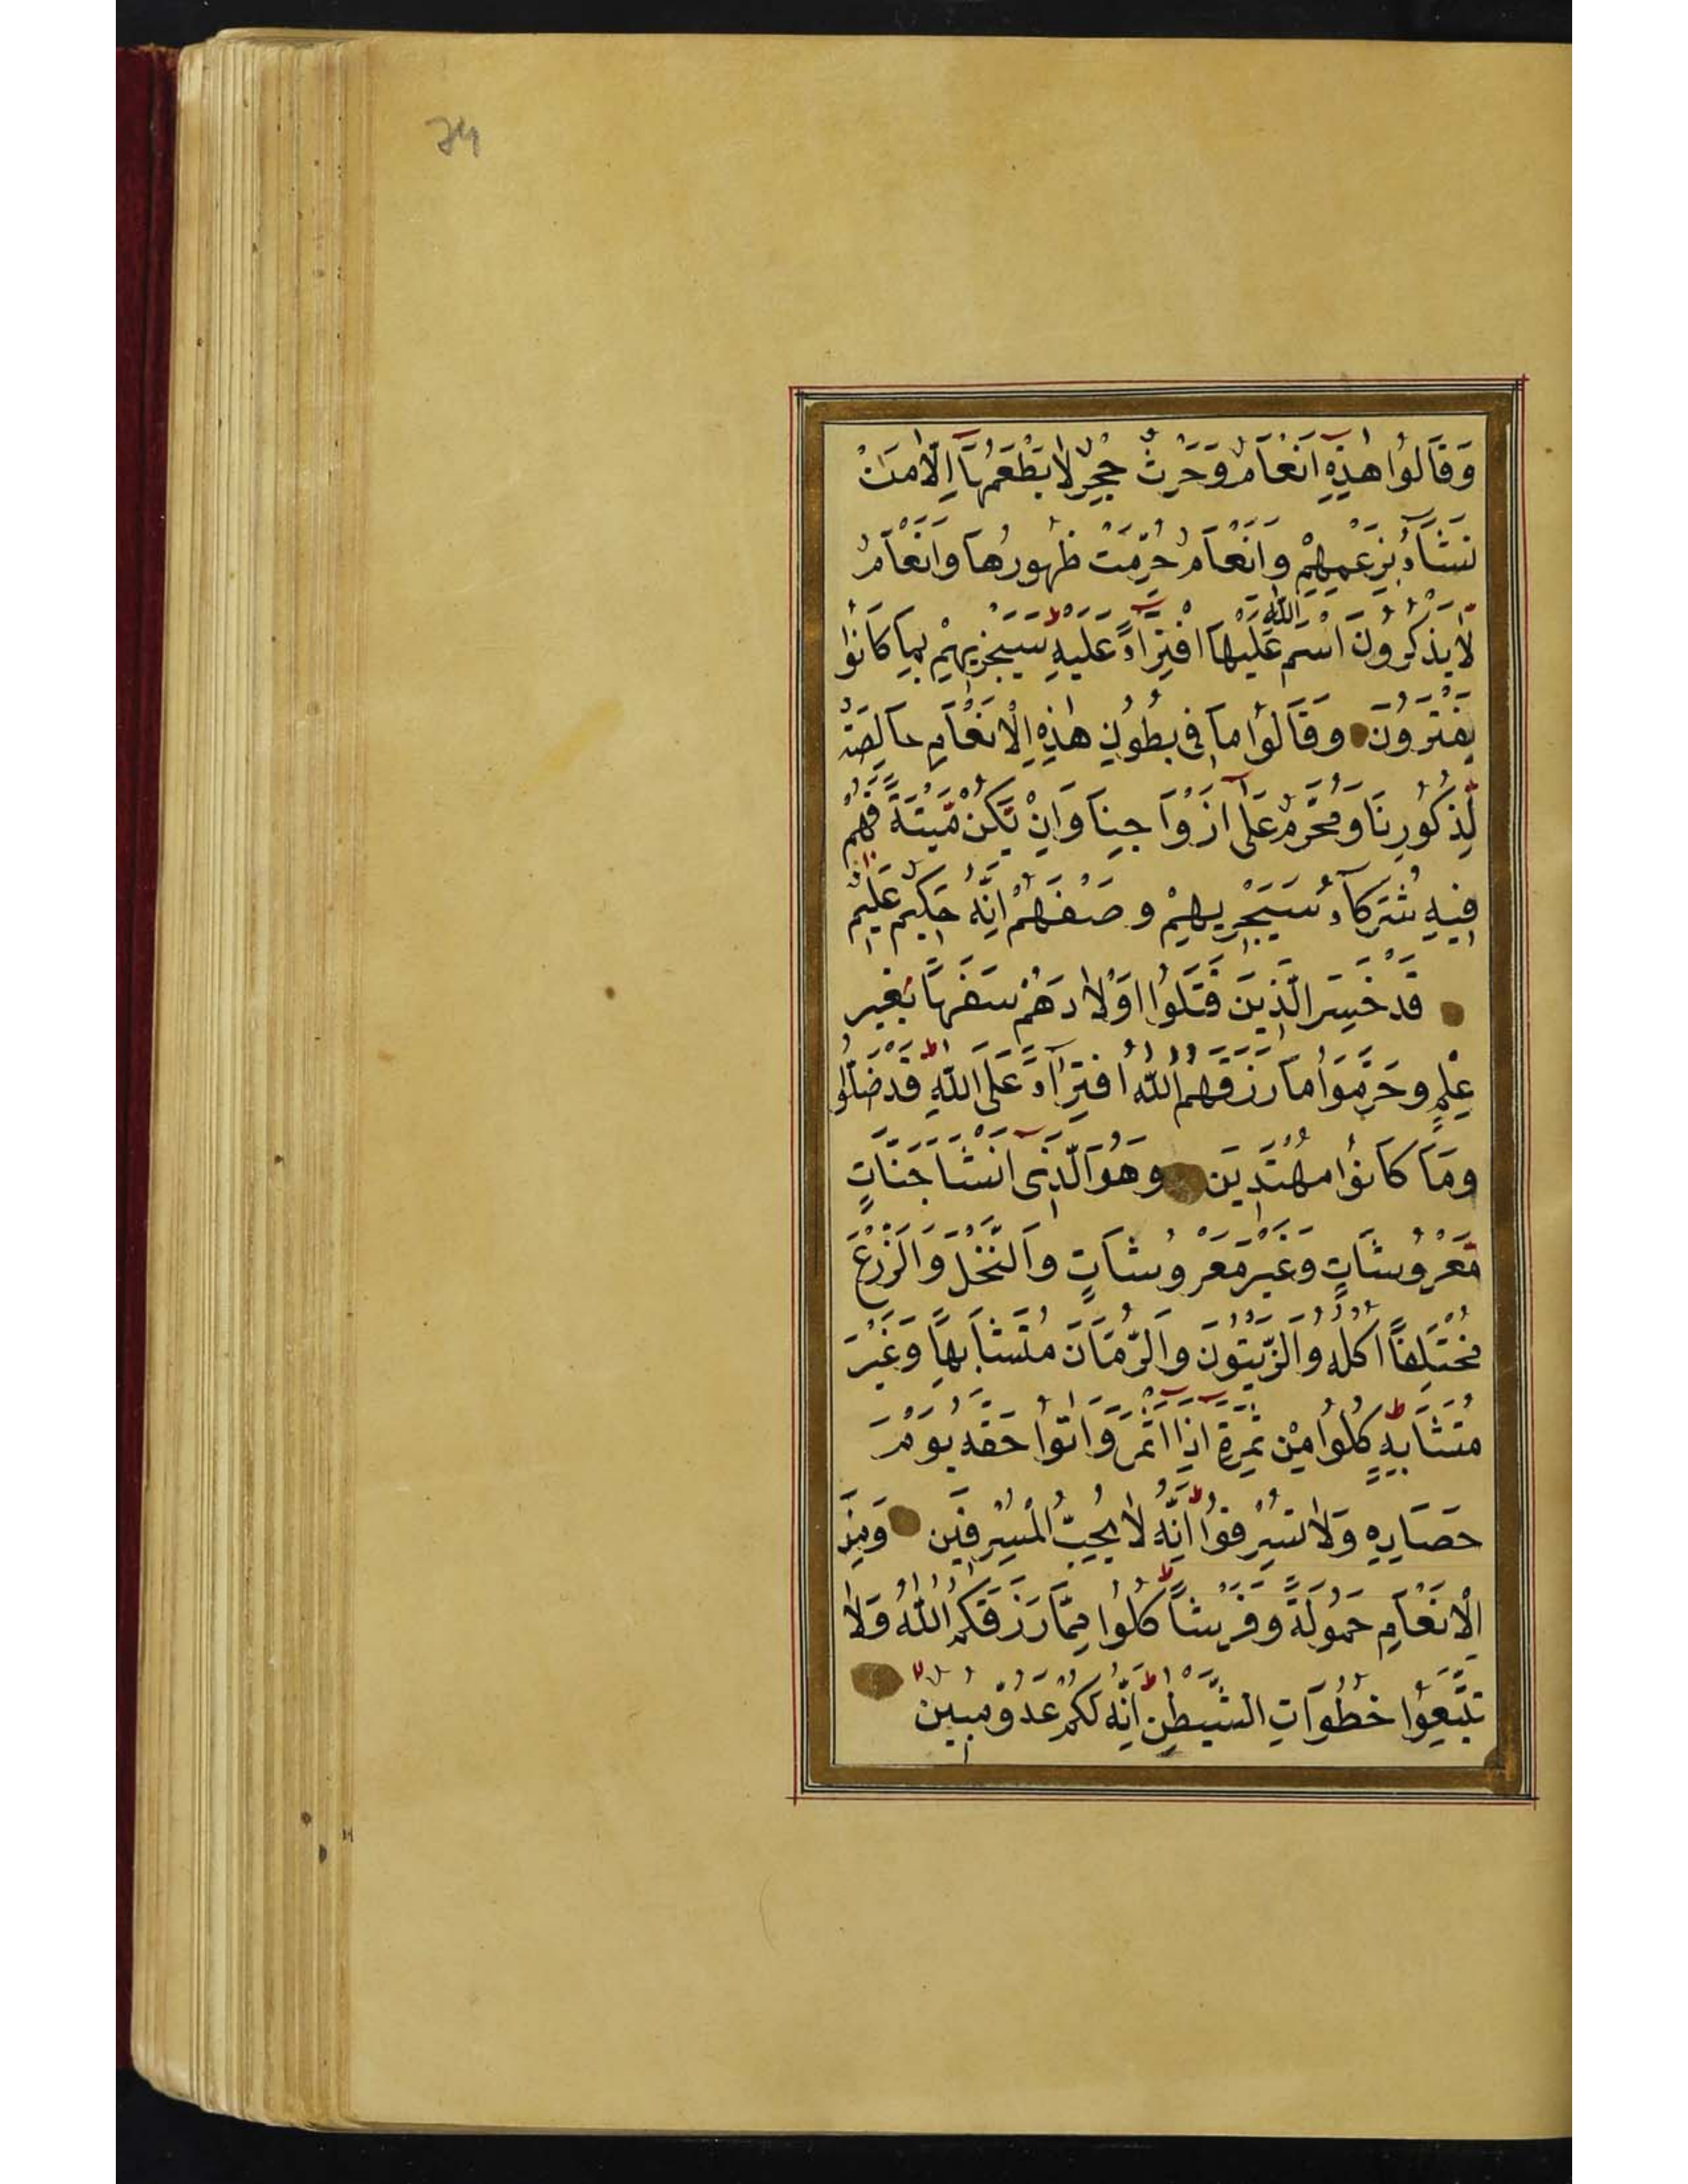 74
وَقَالُوا هٰذِهِ اَنْعَامٌ وَحَرْثٌ حِجْرٌ لَا يَطْعَمُهَآ اِلَّا مَنْ
نَشَآءُ بِزَعْمِهِمْ وَاَنْعَامٌ حُرِّمَتْ ظُهُورُهَا وَاَنْعَامٌ
لَا يَذْكُرُونَ اسْمَ اللّٰهِ عَلَيْهَا افْتِرَآءً عَلَيْهِ ط سَيَجْزِيهِمْ بِمَا كَانُوا
يَفْتَرُونَ وَقَالُوا مَا فِى بُطُونِ هٰذِهِ الْاَنْعَامِ خَالِصَةٌ
لِّذُكُورِنَا وَمُحَرَّمٌ عَلٰٓى اَزْوَاجِنَا وَاِنْ يَّكُنْ مَّيْتَةً فَهُمْ
فِيهِ شُرَكَآءُ سَيَجْزِيهِمْ وَصْفَهُمْ اِنَّهُ حَكِيمٌ عَلِيمٌ
قَدْ خَسِرَ الَّذِينَ قَتَلُوا اَوْلَادَهُمْ سَفَهًا بِغَيْرِ
عِلْمٍ وَحَرَّمُوا مَا رَزَقَهُمُ اللّٰهُ افْتِرَآءً عَلَى اللّٰهِ ط قَدْ ضَلُّوا
وَمَا كَانُوا مُهْتَدِينَ وَهُوَ الَّذِىٓ اَنْشَاَ جَنَّاتٍ
مَّعْرُوشَاتٍ وَغَيْرَ مَعْرُوشَاتٍ وَالنَّخْلَ وَالزَّرْعَ
مُخْتَلِفًا اُكُلُهُ وَالزَّيْتُونَ وَالرُّمَّانَ مُتَشَابِهًا وَغَيْرَ
مُتَشَابِهٍ ط كُلُوا مِنْ ثَمَرِهِ اِذَآ اَثْمَرَ وَاٰتُوا حَقَّهُ يَوْمَ
حَصَادِهِ وَلَا تُسْرِفُوا ط اِنَّهُ لَا يُحِبُّ الْمُسْرِفِينَ وَمِنَ
الْاَنْعَامِ حَمُولَةً وَفَرْشًا ط كُلُوا مِمَّا رَزَقَكُمُ اللّٰهُ وَلَا
تَتَّبِعُوا خُطُوَاتِ الشَّيْطٰنِ ط اِنَّهُ لَكُمْ عَدُوٌّ مُبِينٌ لا